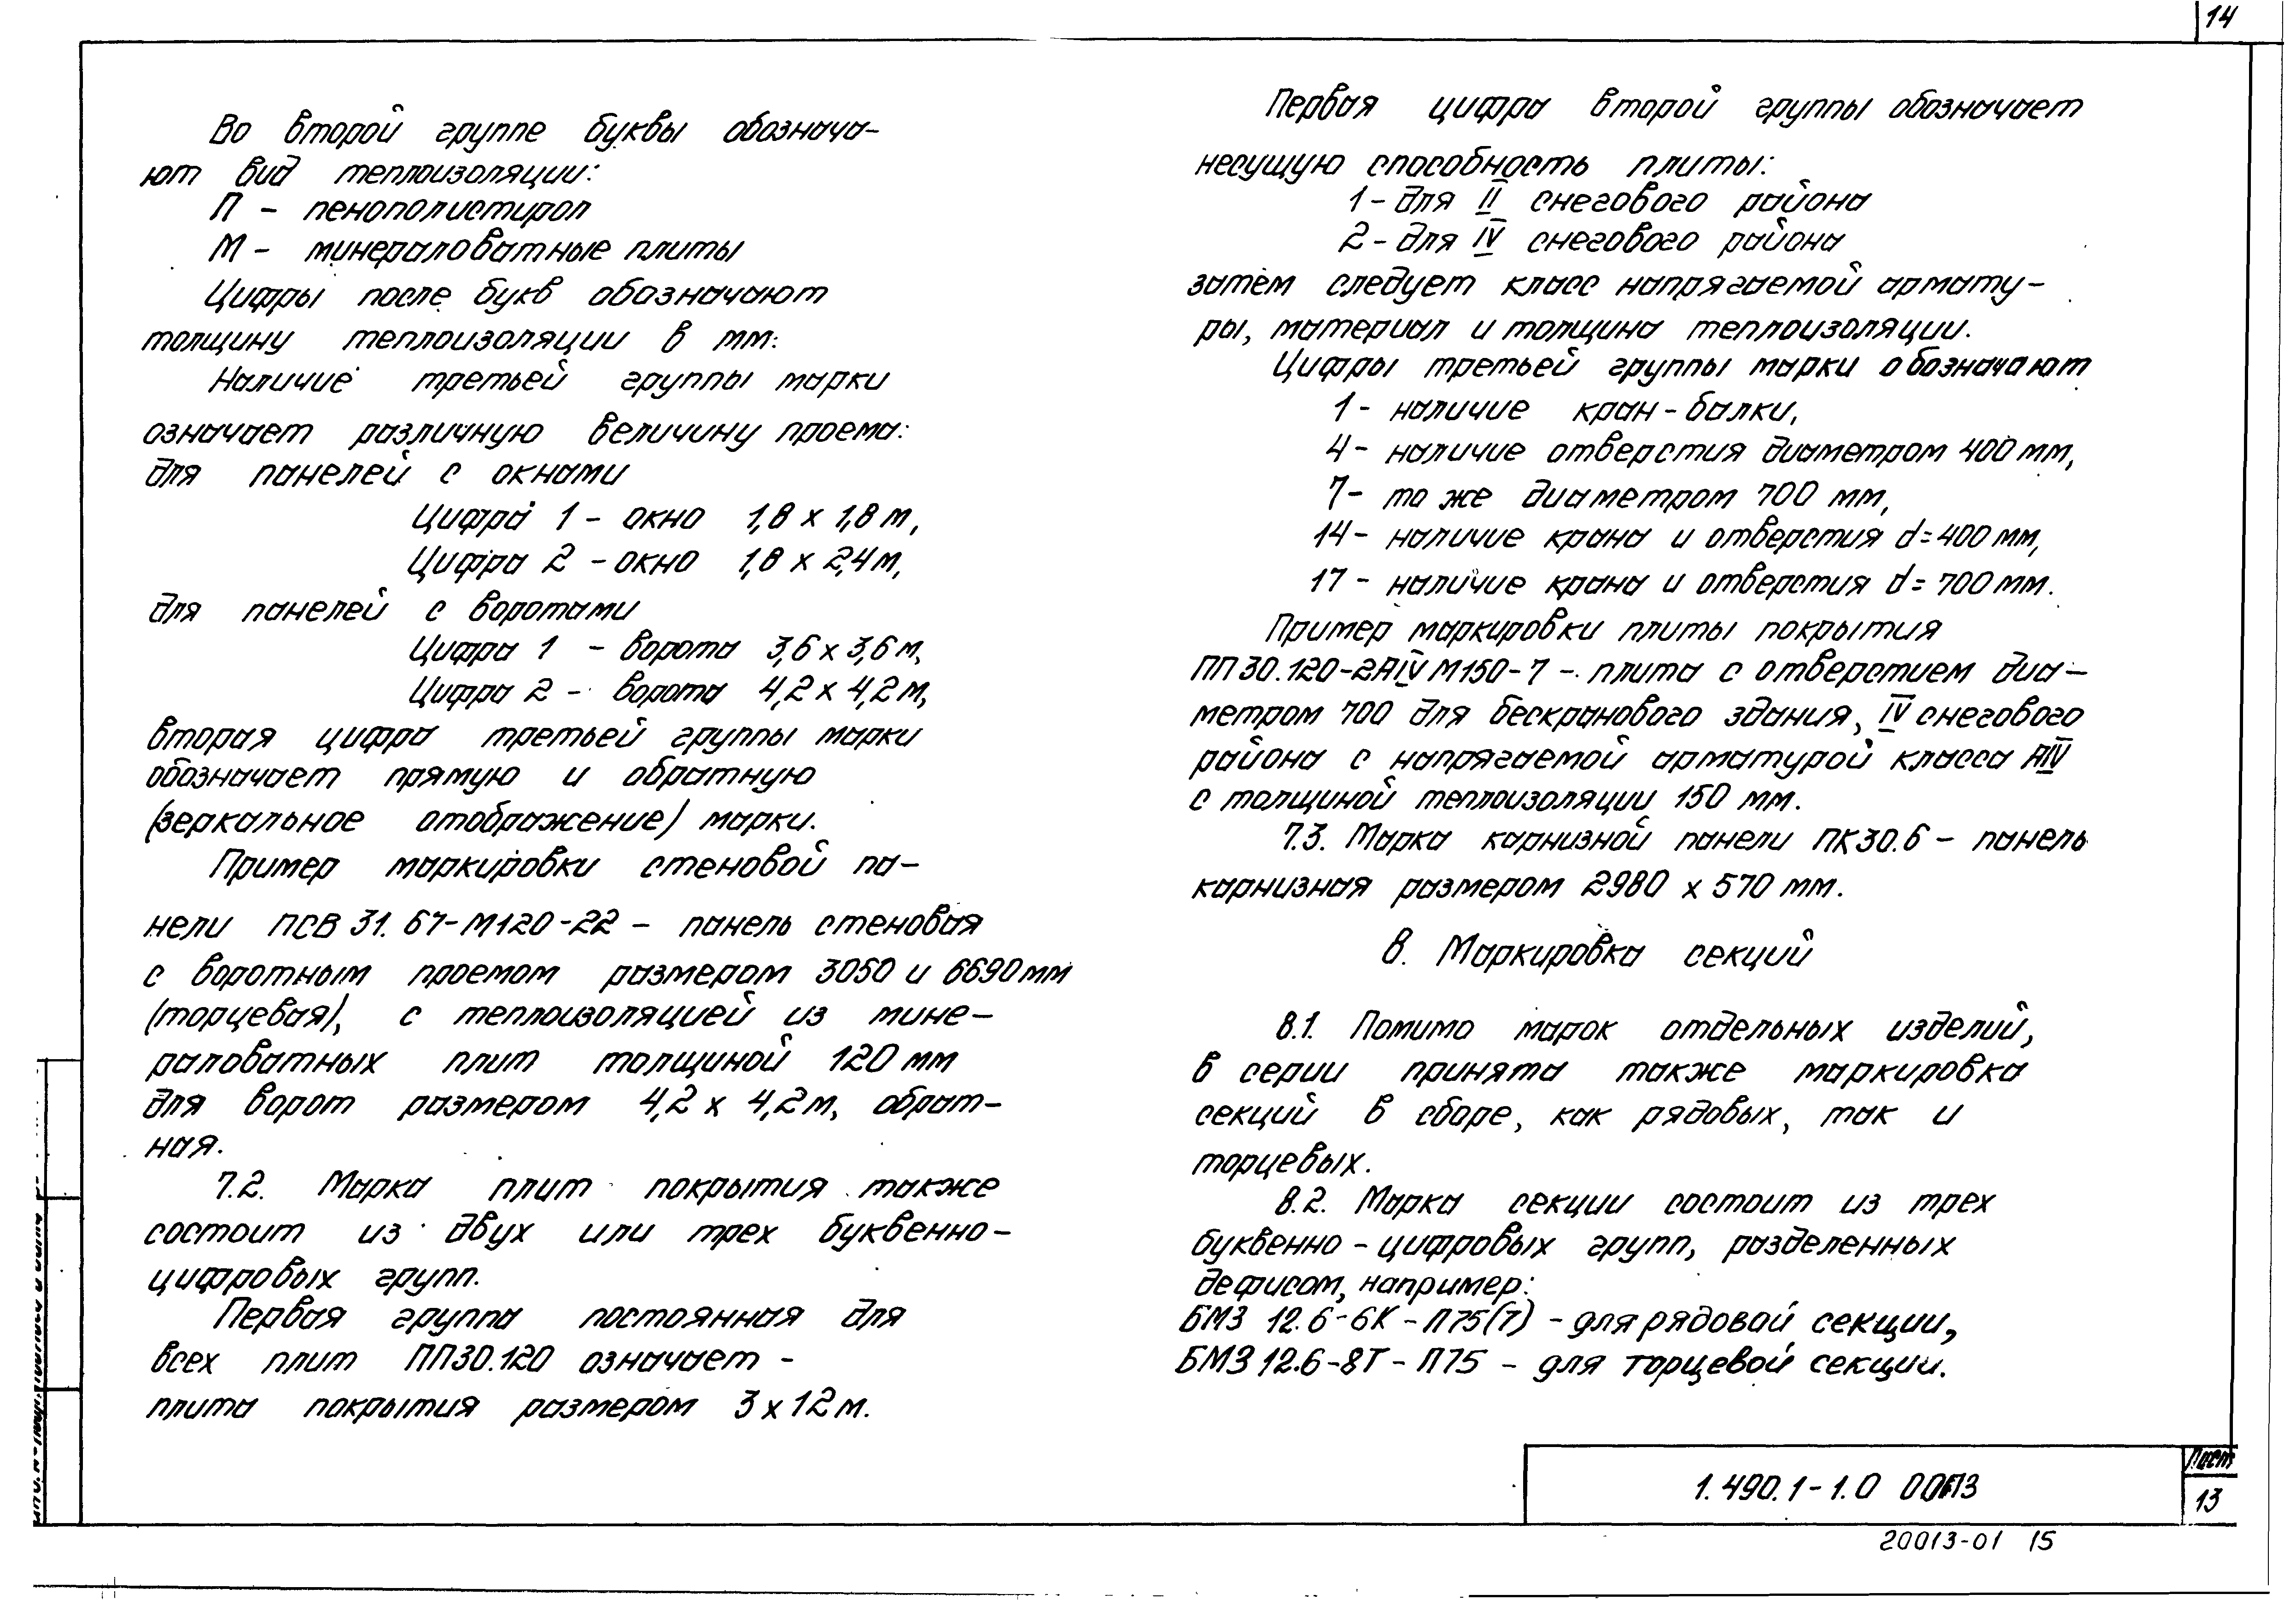 14
Во второй группе буквы обознача-
ют вид теплоизоляции:
П - пенополистирол
М - минераловатные плиты
Цифры после букв обозначают
толщину теплоизоляции в мм.
Наличие третьей группы марки
означает различную величину проема:
для панелей с окнами
Цифра 1 - окно 1,8 х 1,8 м,
Цифра 2 - окно 1,8 х 2,4 м,
для панелей с воротами
Цифра 1 - ворота 3,6 х 3,6 м,
Цифра 2 - ворота 4,2 х 4,2 м,
вторая цифра третьей группы марки
обозначает прямую и обратную
(зеркальное отображение) марки.
Пример маркировки стеновой па-
нели ПСВ 31.67-М120-22 - панель стеновая
с воротным проемом размером 3050 и 6690 мм
(торцевая), с теплоизоляцией из мине-
раловатных плит толщиной 120 мм
для ворот размером 4,2 х 4,2 м, обрат-
ная.
7.2. Марка плит покрытия также
состоит из двух или трех буквенно-
цифровых групп.
Первая группа постоянная для
всех плит ПП30.120 означает -
плита покрытия размером 3 х 12 м.
Первая цифра второй группы обозначает
несущую способность плиты:
1 - для II снегового района
2 - для IV снегового района
затем следует класс напрягаемой армату-
ры, материал и толщина теплоизоляции.
Цифры третьей группы марки обозначают
1 - наличие кран-балки,
4 - наличие отверстия диаметром 400 мм,
7 - то же диаметром 700 мм,
14 - наличие крана и отверстия d=400 мм,
17 - наличие крана и отверстия d=700 мм.
Пример маркировки плиты покрытия
ПП 30.120-2АIV М150-7 - плита с отверстием диа-
метром 700 для бескранового здания, IV снегового
района с напрягаемой арматурой класса АIV
с толщиной теплоизоляции 150 мм.
7.3. Марка карнизной панели ПК30.6 - панель
карнизная размером 2980 х 570 мм.
8. Маркировка секций
8.1. Помимо марок отдельных изделий,
в серии принята также маркировка
секций в сборе, как рядовых, так и
торцевых.
8.2. Марка секции состоит из трех
буквенно-цифровых групп, разделенных
дефисом, например:
БМЗ 12.6-6К-П75(7) - для рядовой секции,
БМЗ 12.6-8Т-П75 - для торцевой секции.
1.490.1-1.0 00ПЗ
Лист
13
20013-01 15